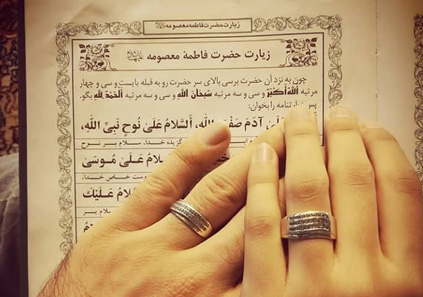 زیارت حضرت فاطمه معصومه
زیارت حضرت فاطمهٔ معصومه
چون به نزد آن حضرت برسی بالای سر حضرت رو به قبله بایست و سی و چهار
مرتبه اَللّٰهُ اَکْبَرُ و سی و سه مرتبه سُبْحانَ اللّٰهِ و سی و سه مرتبه اَلْحَمْدُ لِلّٰهِ بگو.
پس زیارتنامه را بخوان:
آدَمَ صَفْوَةِ اللّٰهِ، اَلسَّلامُ عَلیٰ نُوحٍ نَبِیِّ اللّٰهِ،
گزیده خدا، سلام بر نوح
سَلامُ عَلیٰ مُوسَیٰ
خاص خدا،
لامُ عَلَیْكَ
سلام بر